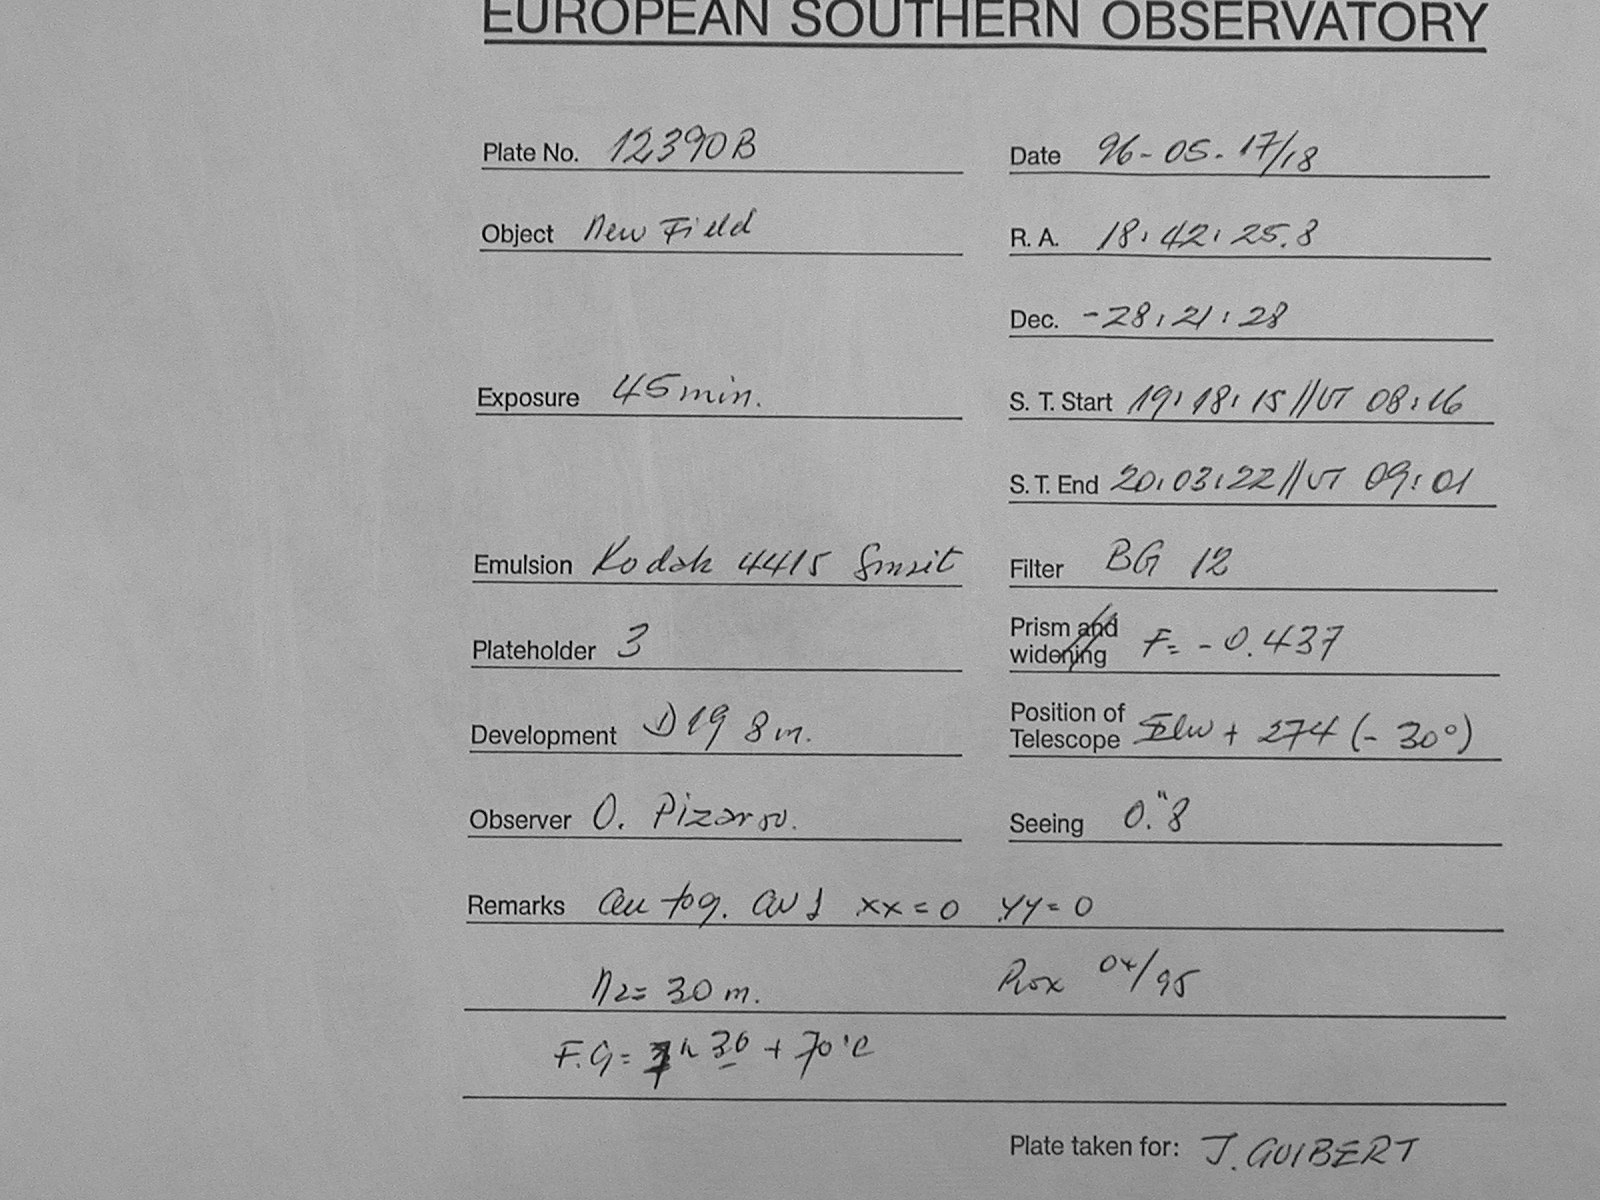 EUROPEAN SOUTHERN OBSERVATORY
Plate No. 12390B
Date 96-05-17/18
Object New Field
R. A. 18:42:25.8
Dec. -28:21:28
Exposure 45 min.
S. T. Start 19:18:15 // UT 08:16
S. T. End 20:03:22 // UT 09:01
Emulsion Kodak 4415
Filter BG 12
Plateholder 3
Prism and widening F= -0.437
Development D19 8 m.
Position of Telescope + 274 (- 30°)
Observer O. Pizarro.
Seeing 0."8
Remarks autog. xx=0 yy=0
N2= 30 m. /95
F.G= h 30 + 70°C
Plate taken for: J. GUIBERT